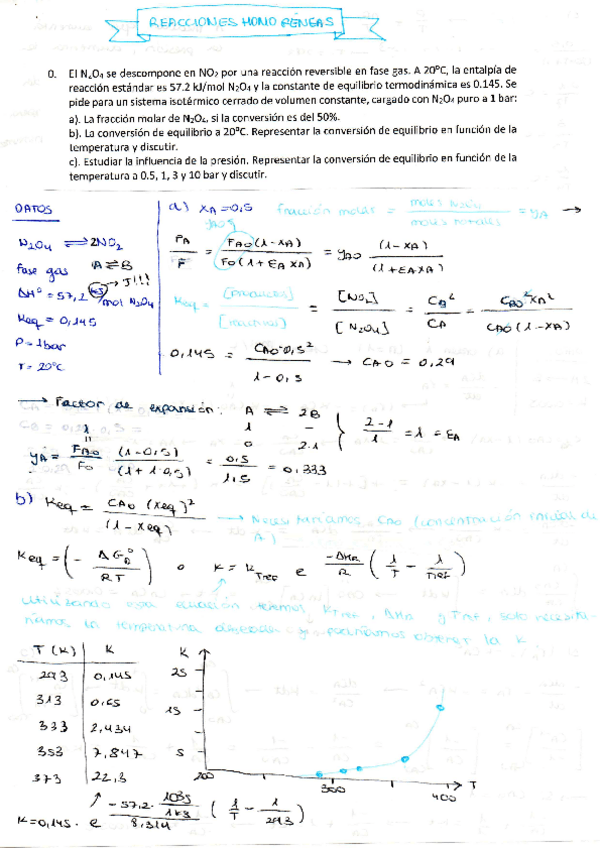 REACCIONES HOMOGÉNEAS
0. El N₂O₄ se descompone en NO₂ por una reacción reversible en fase gas. A 20°C, la entalpía de
reacción estándar es 57.2 kJ/mol N₂O₄ y la constante de equilibrio termodinámica es 0.145. Se
pide para un sistema isotérmico cerrado de volumen constante, cargado con N₂O₄ puro a 1 bar:
a). La fracción molar de N₂O₄, si la conversión es del 50%.
b). La conversión de equilibrio a 20°C. Representar la conversión de equilibrio en función de la
temperatura y discutir.
c). Estudiar la influencia de la presión. Representar la conversión de equilibrio en función de la
temperatura a 0.5, 1, 3 y 10 bar y discutir.
DATOS
N₂O₄ ⇌ 2NO₂
fase gas A ⇌ B
→ J!!!
ΔH° = 57,2 kJ/mol N₂O₄
Keq = 0,145
P = 1 bar
T = 20°C
a) XA = 0,5 fracción molar = moles N₂O₄ / moles totales = yA →
yA0
FA / F = FA0(1-XA) / F0(1+εA XA) = yA0 (1-XA) / (1+εA XA)
Keq = [productos] / [reactivos] = [NO₂] / [N₂O₄] = CB² / CA = CA0² XA² / CA0(1-XA)
0,145 = CA0·0,5² / 1-0,5 → CA0 = 0,29
→ Factor de expansión: A ⇌ 2B
1 -
0 2·1
2-1 / 1 = 1 = εA
1
yA = FA0 / F0 (1-0,5) / (1+1·0,5) = 0,5 / 1,5 = 0,333
b) Keq = CA0 (Xeq)² / (1-Xeq) → Necesitaríamos CA0 (concentración inicial de
A)
Keq = (- ΔG°R / RT) o K = K Tref e -ΔHR / R (1/T - 1/Tref)
Utilizando esta ecuación tenemos KTref, ΔHR y Tref, solo necesita-
ríamos la temperatura y podríamos obtener la K
T (K) K
293 0,145
313 0,65
333 2,434
353 7,847
373 22,3
K
25
15
5
200 300 400 T
K = 0,145 · e -57,2 · 10³J/1kJ / 8,314 (1/T - 1/293)